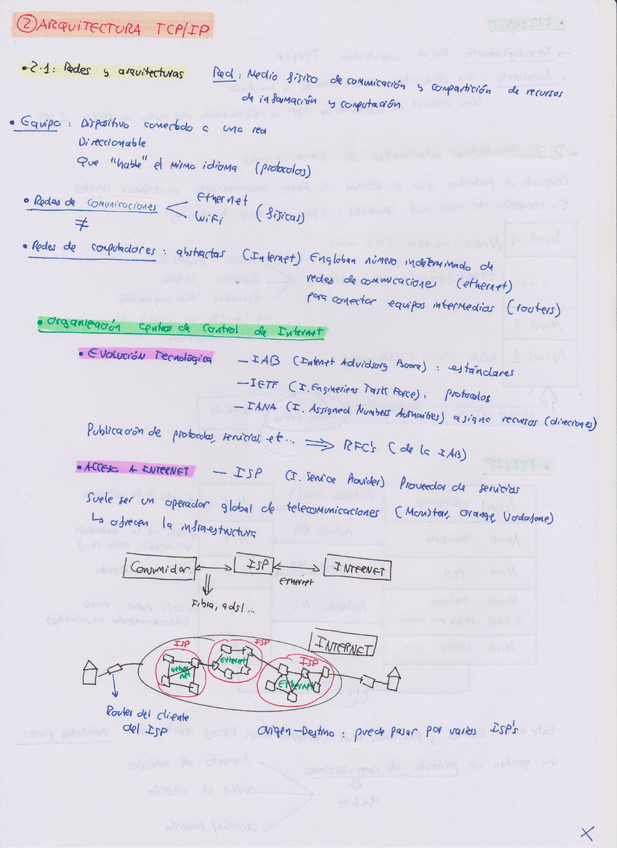 ② ARQUITECTURA TCP/IP
• 2.1: Redes y arquitecturas Red: Medio físico de comunicación y compartición de recursos
de información y computación
• Equipo: Dispositivo conectado a una red
Direccionable
Que "hable" el mismo idioma (protocolos)
• Redes de comunicaciones Ethernet
WiFi (físicas)
≠
• Redes de computadores: abstractas (Internet) Engloban número indeterminado de
redes de comunicaciones (ethernet)
para conectar equipos intermedios (routers)
• Organización central de control de Internet
• EVOLUCIÓN TECNOLÓGICA — IAB (Internet Advidsorg Board): estándares
— IETF (I. Engineriens Task Force), protocolos
— IANA (I. Assigned Numbers Authorities) asigna recursos (direcciones)
Publicación de protocolos, servicios, etc... ⇒ RFC's (de la IAB)
• ACCESO A INTERNET — ISP (I. Service Provider) Proveedor de servicios
Suele ser un operador global de telecomunicaciones (Movistar, orange, Vodafone)
↳ ofrecen la infraestructura
Consumidor ISP INTERNET
Ethernet
Fibra, adsl...
INTERNET
ISP ISP ISP
ethernet ethernet Ethernet
Router del cliente
del ISP
Origen-Destino: puede pasar por varios ISP's
X